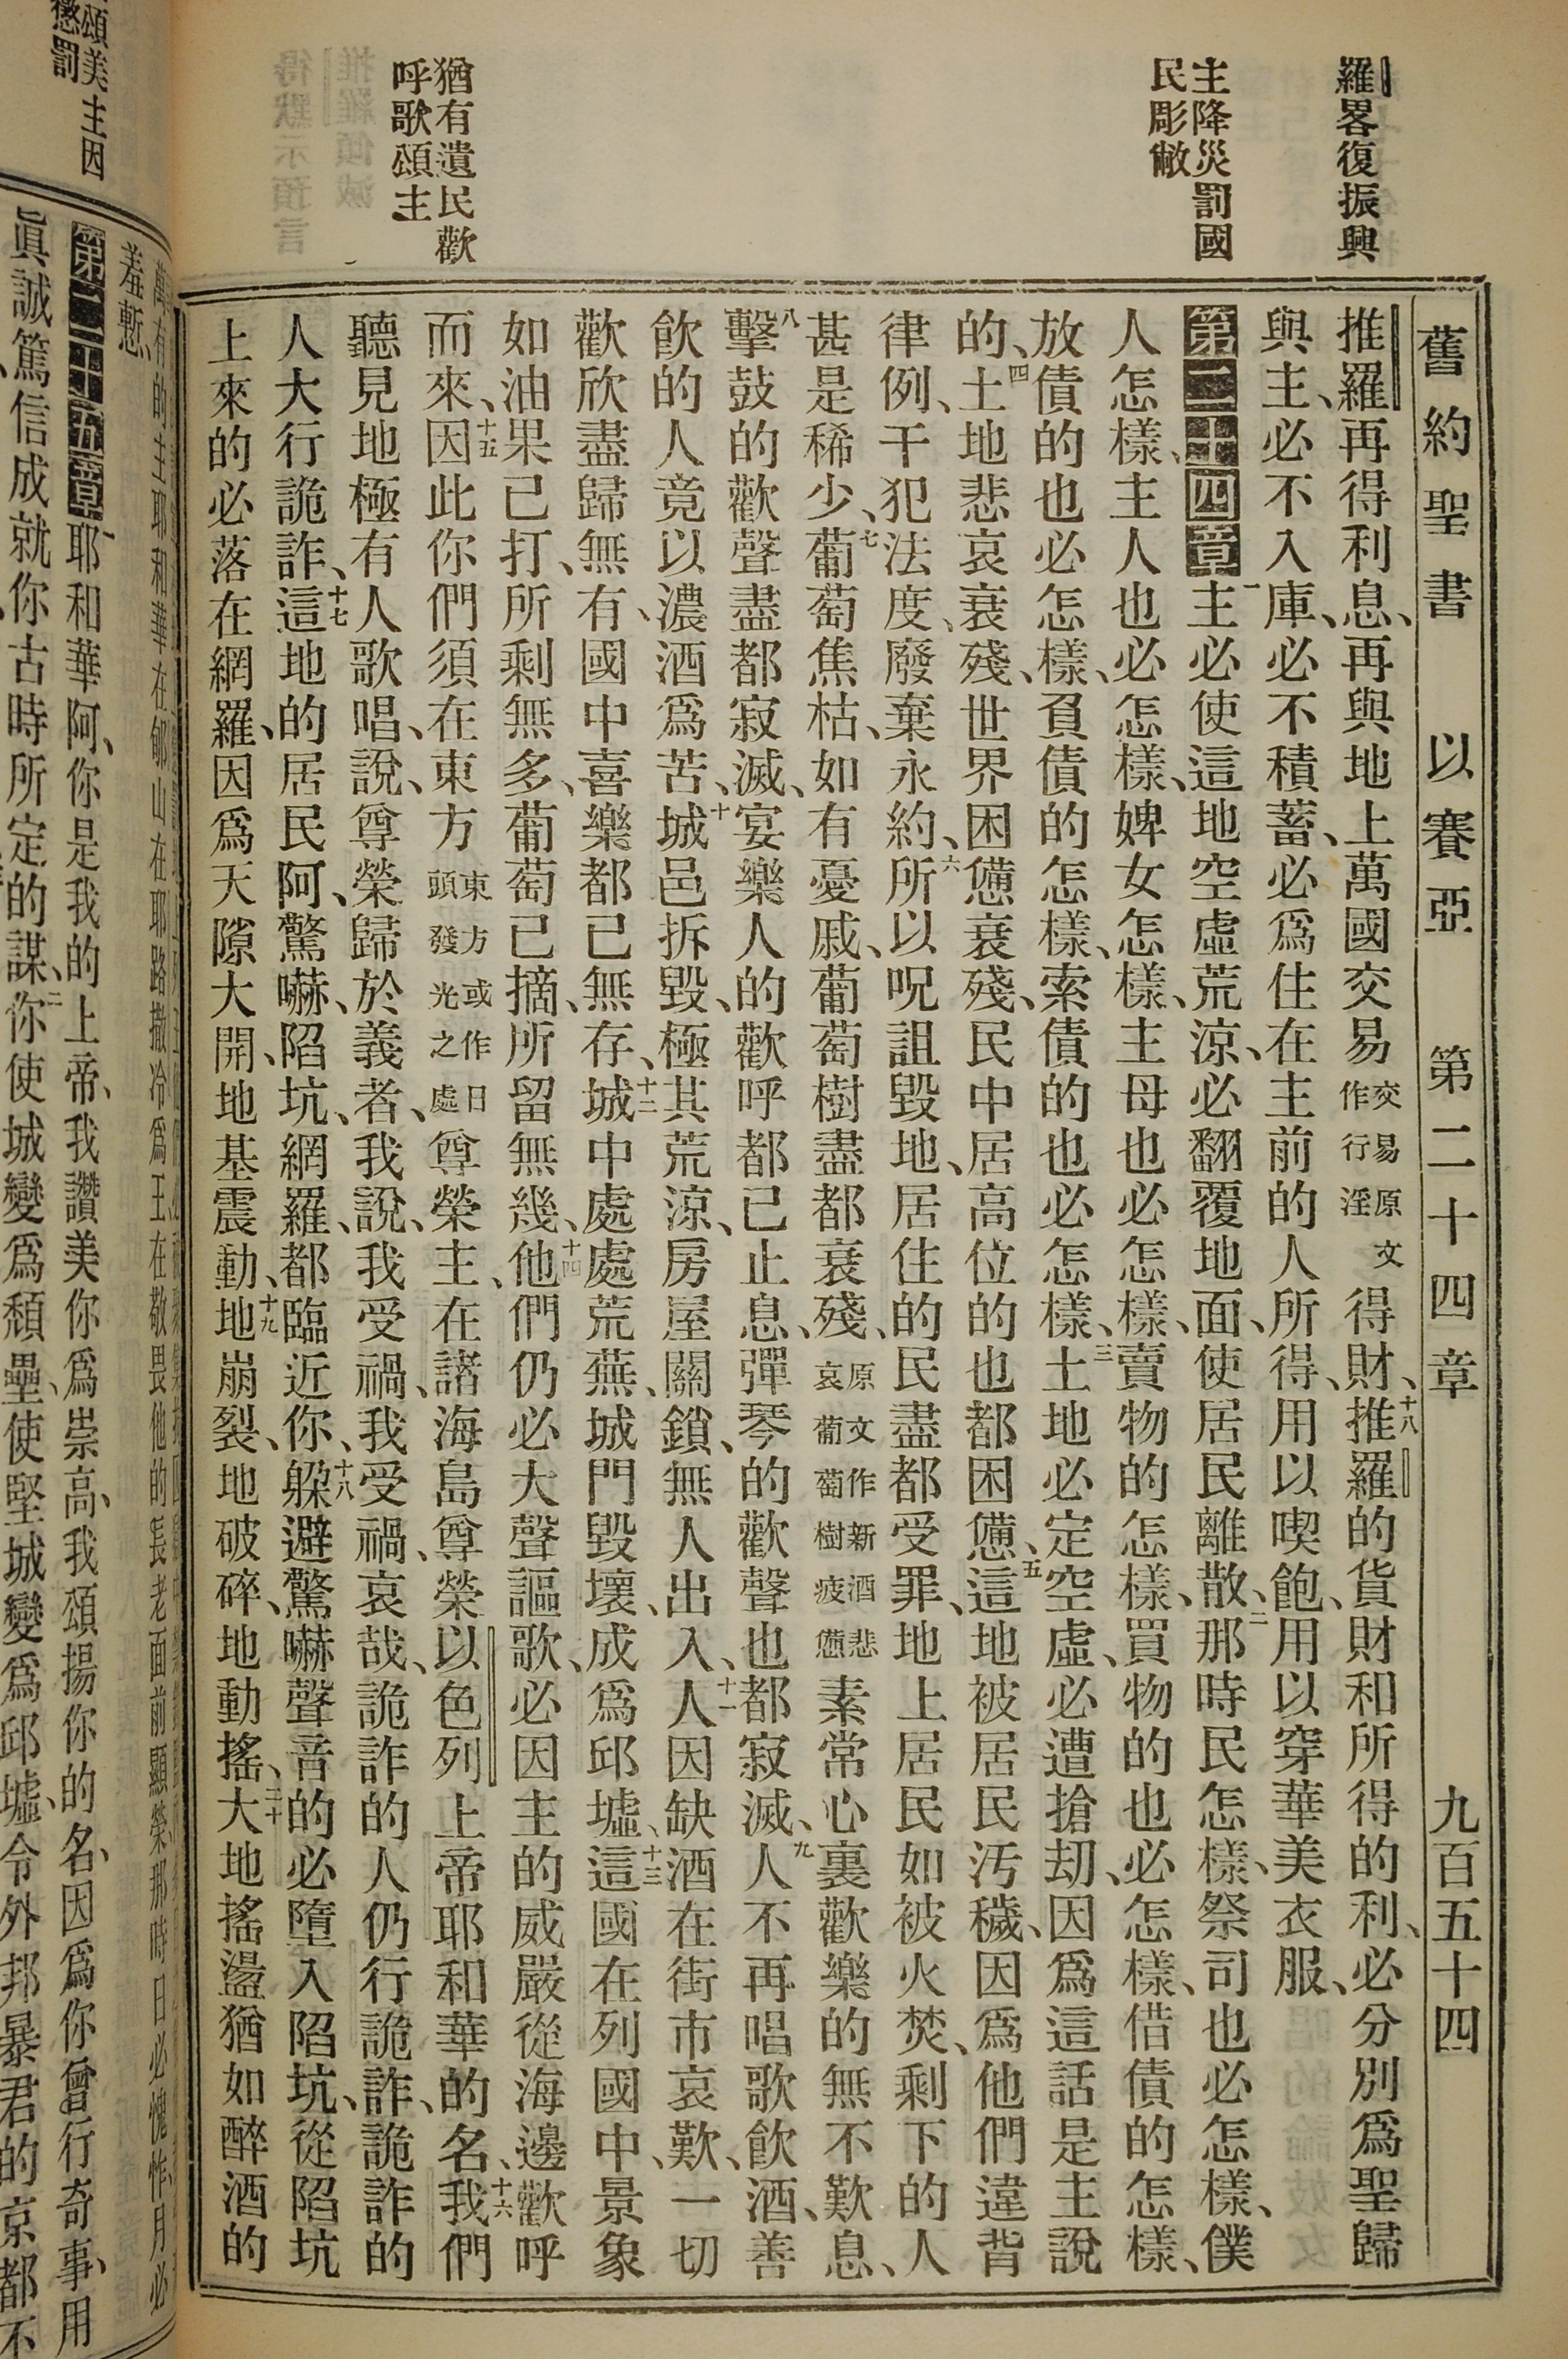 羅畧復振興
主降災罰國
民彫敝
猶有遺民歡
呼歌頌主
舊約聖書 以賽亞 第二十四章 九百五十四
推羅再得利息、再與地上萬國交易交易原文作行淫得財、十八推羅的貨財和所得的利、必分別爲聖歸
與主、必不入庫、必不積蓄、必爲住在主前的人所得、用以喫飽、用以穿華美衣服、
第二十四章一主必使這地空虛荒涼、必翻覆地面、使居民離散、二那時民怎樣、祭司也必怎樣、僕
人怎樣、主人也必怎樣、婢女怎樣、主母也必怎樣、賣物的怎樣、買物的也必怎樣、借債的怎樣、
放債的也必怎樣、負債的怎樣、索債的也必怎樣、三土地必定空虛、必遭搶刧、因爲這話是主說
的、四土地悲哀衰殘、世界困憊衰殘、民中居高位的也都困憊、五這地被居民汚穢、因爲他們違背
律例、干犯法度、廢棄永約、六所以呪詛毀地、居住的民盡都受罪、地上居民如被火焚、剩下的人
甚是稀少、七葡萄焦枯、如有憂戚、葡萄樹盡都衰殘、原文作新酒悲哀葡萄樹疲憊素常心裏歡樂的無不歎息、
八擊鼓的歡聲盡都寂滅、宴樂人的歡呼都已止息、彈琴的歡聲也都寂滅、九人不再唱歌飲酒、善
飲的人竟以濃酒爲苦、十城邑拆毀、極其荒涼、房屋關鎖、無人出入、十一人因缺酒在街市哀歎、一切
歡欣盡歸無有、國中喜樂都已無存、十二城中處處荒蕪、城門毀壞、成爲邱墟、十三這國在列國中、景象
如油果已打、所剩無多、葡萄已摘、所留無幾、十四他們仍必大聲謳歌、必因主的威嚴從海邊歡呼
而來、十五因此你們須在東方東方或作日頭發光之處尊榮主、在諸海島尊榮以色列上帝耶和華的名、十六我們
聽見地極有人歌唱、說、尊榮歸於義者、我說、我受禍、我受禍、哀哉、詭詐的人仍行詭詐、詭詐的
人大行詭詐、十七這地的居民阿、驚嚇、陷坑、網羅、都臨近你、十八躲避驚嚇聲音的必墮入陷坑、從陷坑
上來的必落在網羅、因爲天隙大開、地基震動、十九地崩裂、地破碎、地動搖、二十大地搖盪猶如醉酒的
頌美主因
懲罰
有的主耶和華在郇山在耶路撒冷爲王在敬畏他的長老面前顯榮、那時日必愧怍月必
羞慙、
第二十五章一耶和華阿、你是我的上帝、我讚美你爲崇高、我頌揚你的名、因爲你曾行奇事、用
眞誠篤信成就你古時所定的謀、二你使城變爲頹壘、使堅城變爲邱墟、令外邦暴君的京都不